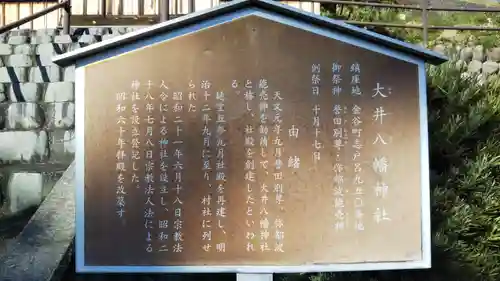 大井八幡神社
鎮座地 金谷町志戸呂九五〇番地
御祭神 誉田別尊・弥都波能売神
例祭日 十月十七日
由緒
天文元年九月誉田別尊、弥都波
能売神を勧請して、大井八幡神社
と称し、社殿を創建したといわれ
る。
九月社殿を再建し、明
治十二年九月に至り、村社に列せ
られた。
昭和二十一年六月十八日宗教法
人令による神社を設立し、昭和二
十八年七月八日宗教法人法による
神社を設立登記した。
昭和六十年拝殿を改築す。